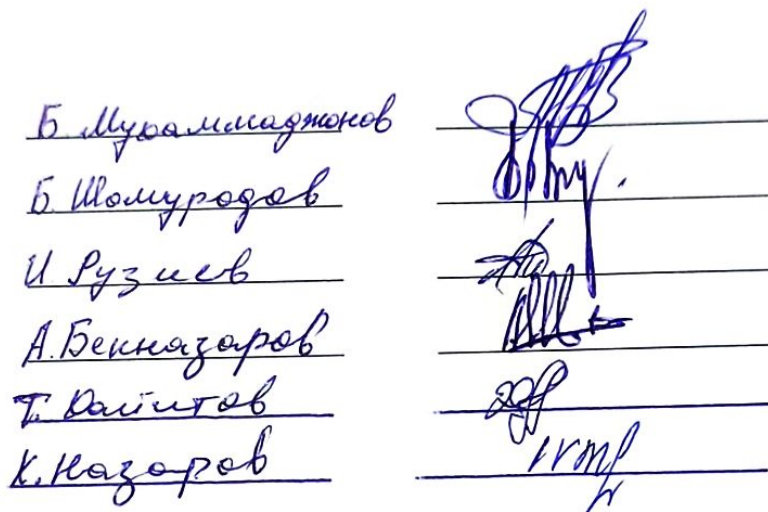 Б. Мухаммаджонов
Б. Шомуродов
И. Рузиев
А. Бекназаров
Т.
К. Назаров